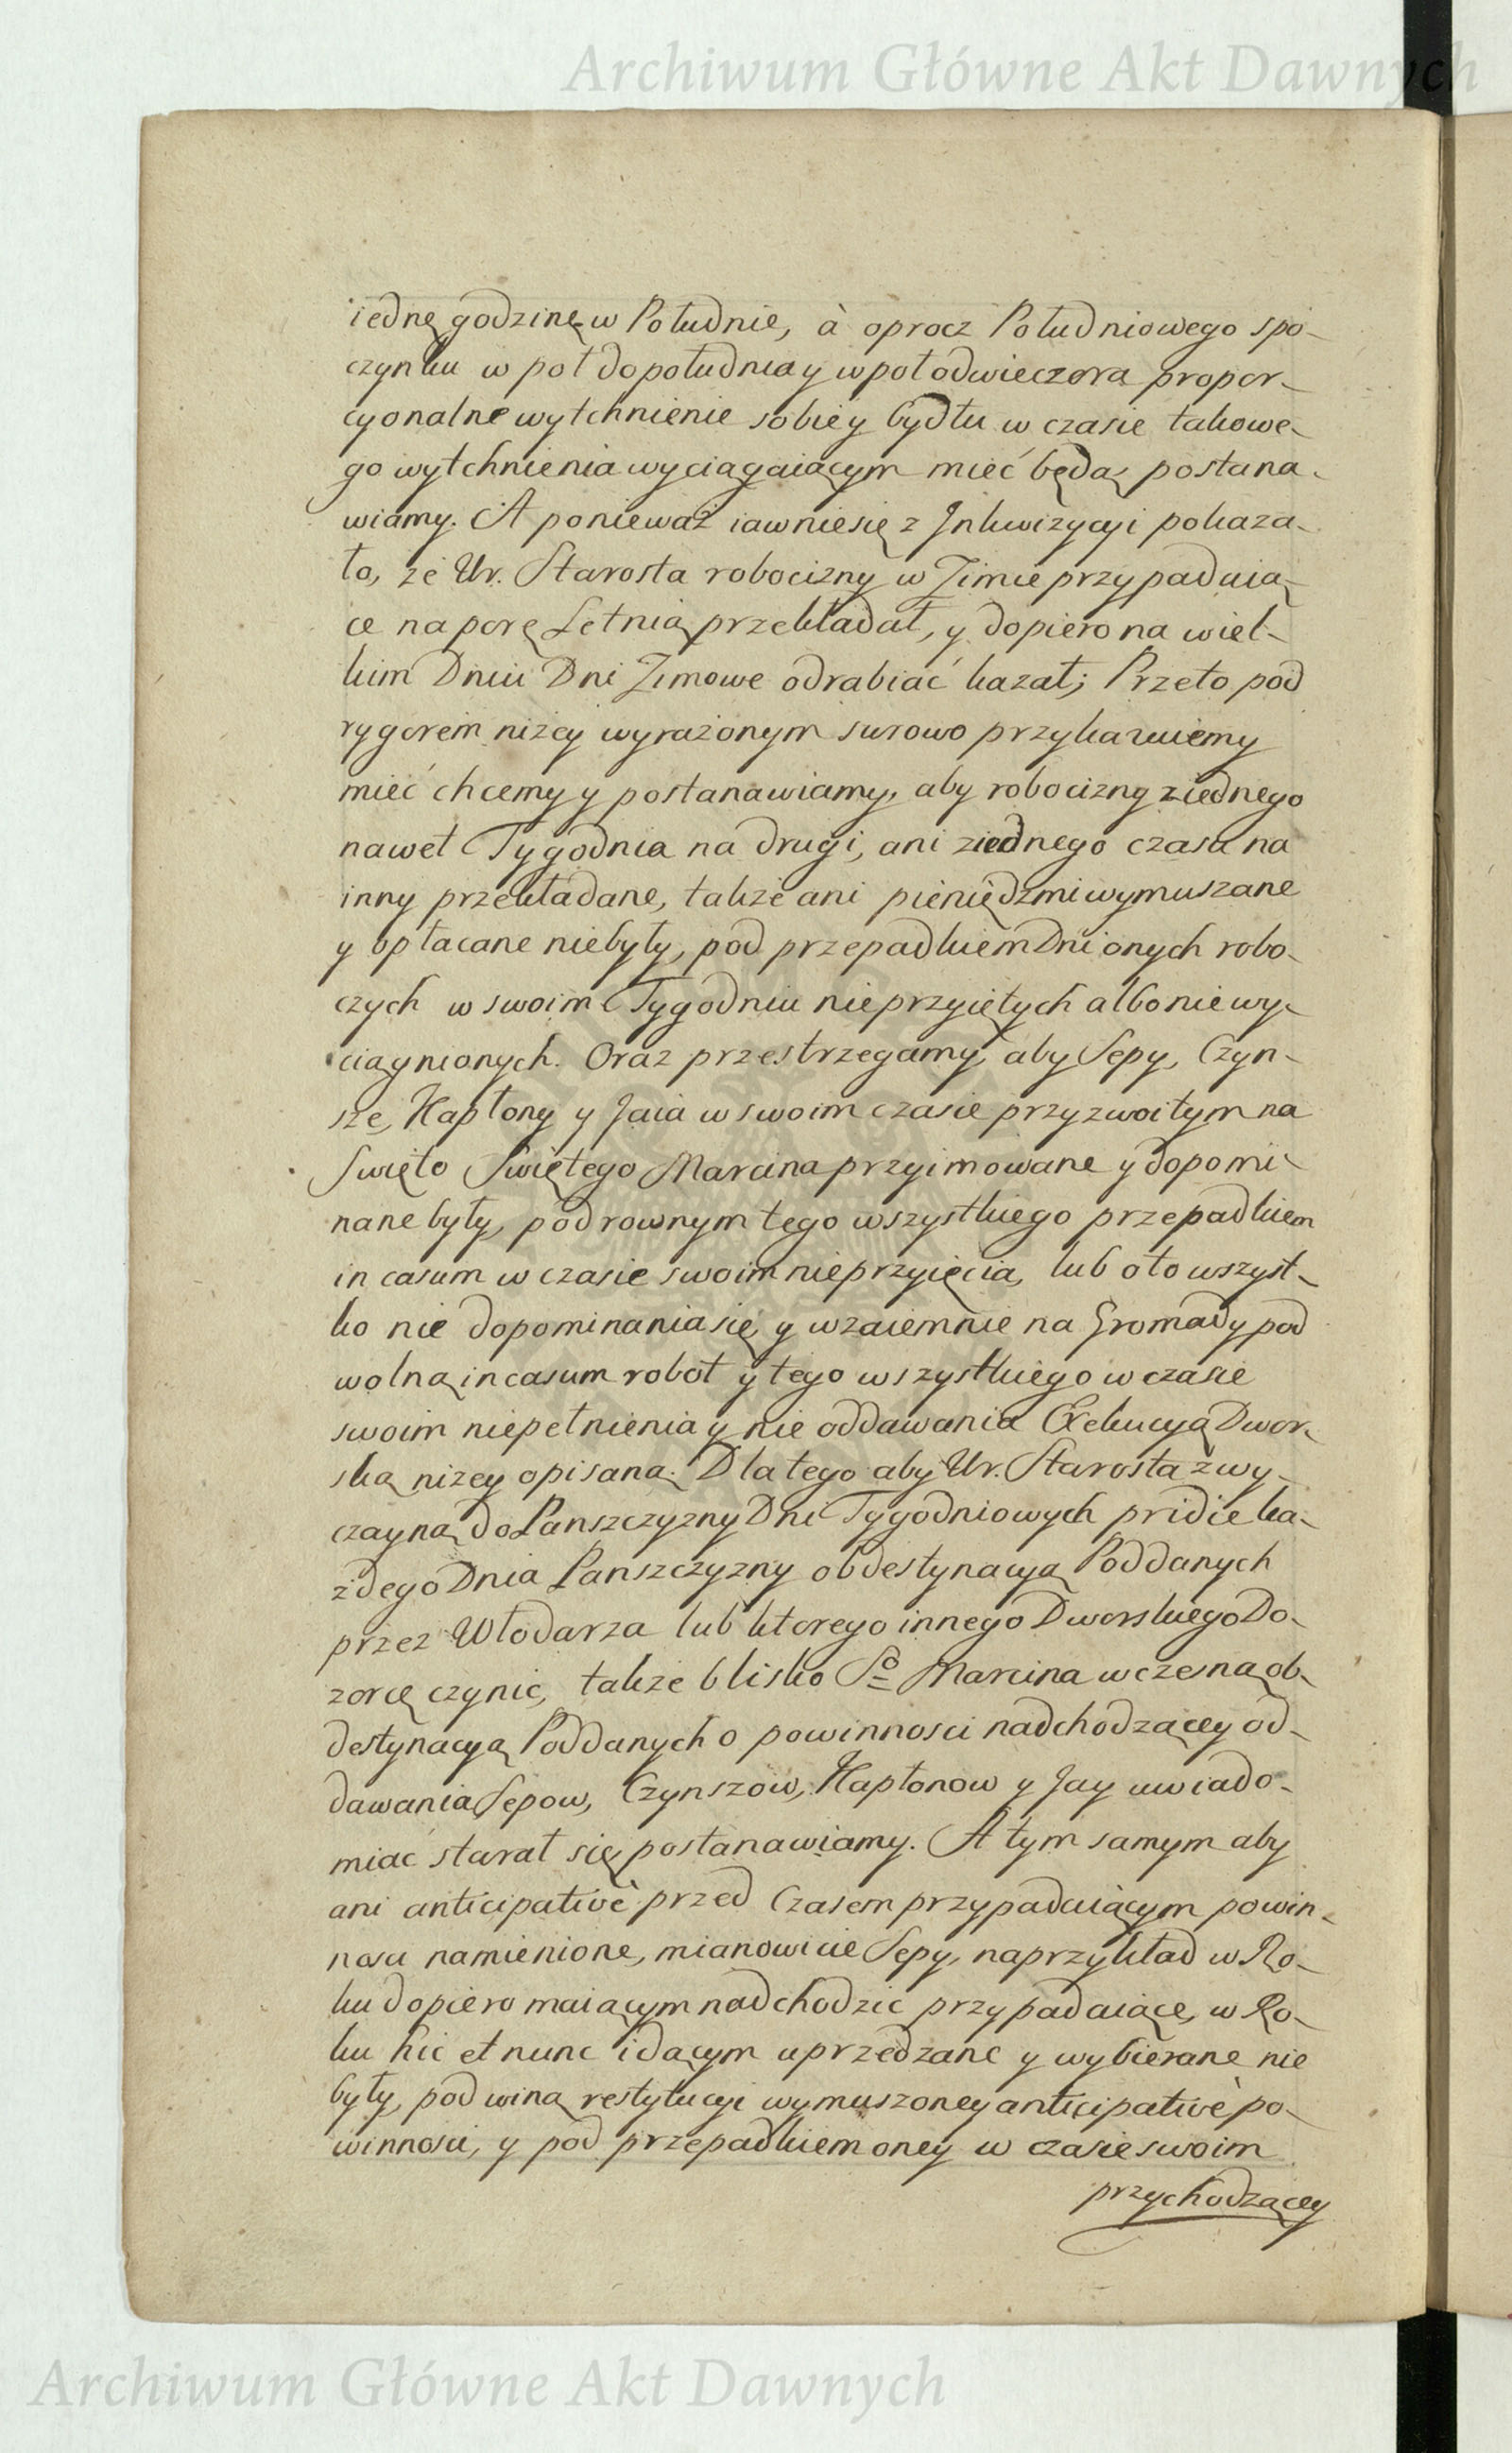 Archiwum Główne Akt Dawnych
iednę godzinę w Południe, à oprocz Południowego spo-
czynku w poł dopołudnia y wpoł odwieczora propor-
cyonalne wytchnienie sobie y bydłu w czasie takowe-
go wytchnienia wyciągaiącym mieć będą, postana-
wiamy. A ponieważ iawnie się z Inkwizycyi pokaza-
ło, że Ur. Starosta robocizny w Zimie przypadaią-
ce na porę Letnią przekładał, y dopiero na wiel-
kim Dniu Dni Zimowe odrabiać kazał; Przeto pod
rygorem niżey wyrażonym surowo przykazuiemy
mieć chcemy y postanawiamy, aby robocizny ziednego
nawet Tygodnia na drugi, ani ziednego czasu na
inny przekładane, także ani pieniędzmi wymuszane
y opłacane niebyły, pod przepadkiem Dni onych robo-
czych w swoim Tygodniu nieprzyiętych albo niewy-
ciągnionych. Oraz przestrzegamy, aby Sepy, Czyn-
sze, Kapłony y Jaia w swoim czasie przyzwoitym na
Swięto Swiętego Marcina przyimowane y dopomi-
nane były, pod rownym tego wszystkiego przepadkiem
in casum w czasie swoim nieprzyięcia, lub oto wszyst-
ko nie dopominania się, y wzaiemnie na Gromady pod
wolną in casum robot y tego wszystkiego w czasie
swoim niepełnienia y nie oddawania Exekucyą Dwor-
ską niżey opisaną. Dlatego aby Ur. Starosta zwy-
czayną do Panszczyzny Dni Tygodniowych pridie ka-
żdego Dnia Panszczyzny obdestynacyą Poddanych
przez Włodarza lub ktorego innego Dworskiego Do-
zorcę czynic, także blisko So Marcina wczesną ob-
destynacyą Poddanych o powinnosci nadchodzącey od-
dawania Sepow, Czynszow, Kapłonow y Jay uwiado-
miać starał się postanawiamy. A tym samym aby
ani anticipativè przed Czasem przypadaiącym powin-
nosci namienione, mianowicie Sepy, naprzykład w Ro-
ku dopiero maiącym nadchodzic przypadaiące, w Ro-
ku hic et nunc idącym uprzedzane y wybierane nie
były, pod winą restytucyi wymuszoney anticipativè po-
winnosci, y pod przepadkiem oney w czasie swoim
przychodzącey
Archiwum Główne Akt Dawnych